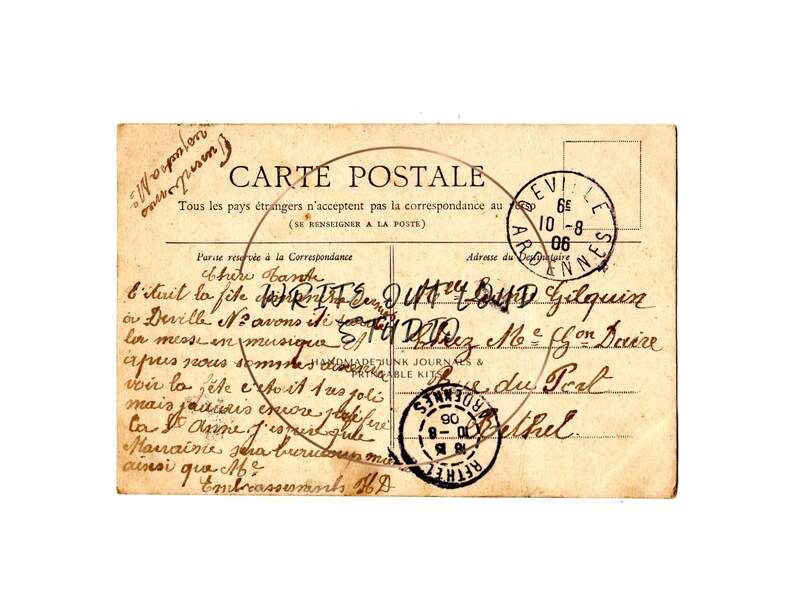 CARTE POSTALE
Tous les pays étrangers n'acceptent pas la correspondance au verso
(SE RENSEIGNER A LA POSTE)
Partie réservée à la Correspondance
Chère Tante
C'était la fête dimanche dernier
à Deville Ns avons été
la messe en musique et
puis nous sommes
voir la fête c'était très joli
mais j'aurais encore préféré
la Ste Anne j'espère que
Marraine sera beaucoup mieux
ainsi que Me
Embrassements HD
Adresse du Destinataire
Gilquin
Chez Me Gon Daire
Rue du Port
Rethel.
DEVILLE
6E
10 -8
06
ARDENNES
RETHEL
10 -8
06
ARDENNES
WRITE OUT LOUD
STUDIO
HANDMADE JUNK JOURNALS &
PRINTABLE KITS